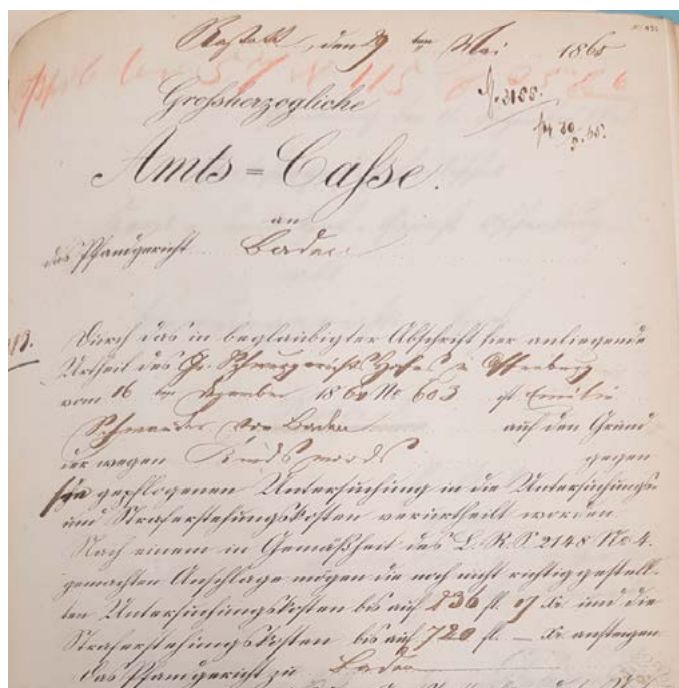 Rastatt, den 29 ten Mai 1865
Großherzogliche
Amts=Casse.
an
das Pfandgericht Baden
Durch das in beglaubigter Abschrift hier anliegende
Urtheil des Gr. Schwurgerichts Hofes in Offenburg
vom 16 ten Dezember 1864 No 603 ist Emilie
Schwander von Baden auf den Grund
der wegen Kindsmords gegen
sie gepflogenen Untersuchung in die Untersuchungs-
und Straferstehungskosten verurtheilt worden.
Nach einem in Gemäßheit des L. R. S. 2148 No 4.
gemachten Anschlage mögen die noch nicht richtig gestell-
ten Untersuchungskosten bis auf 236 fl. 07 Xr. und die
Straferstehungskosten bis auf 720 fl. — Xr. ansteigen.
Das Pfandgericht zu Baden